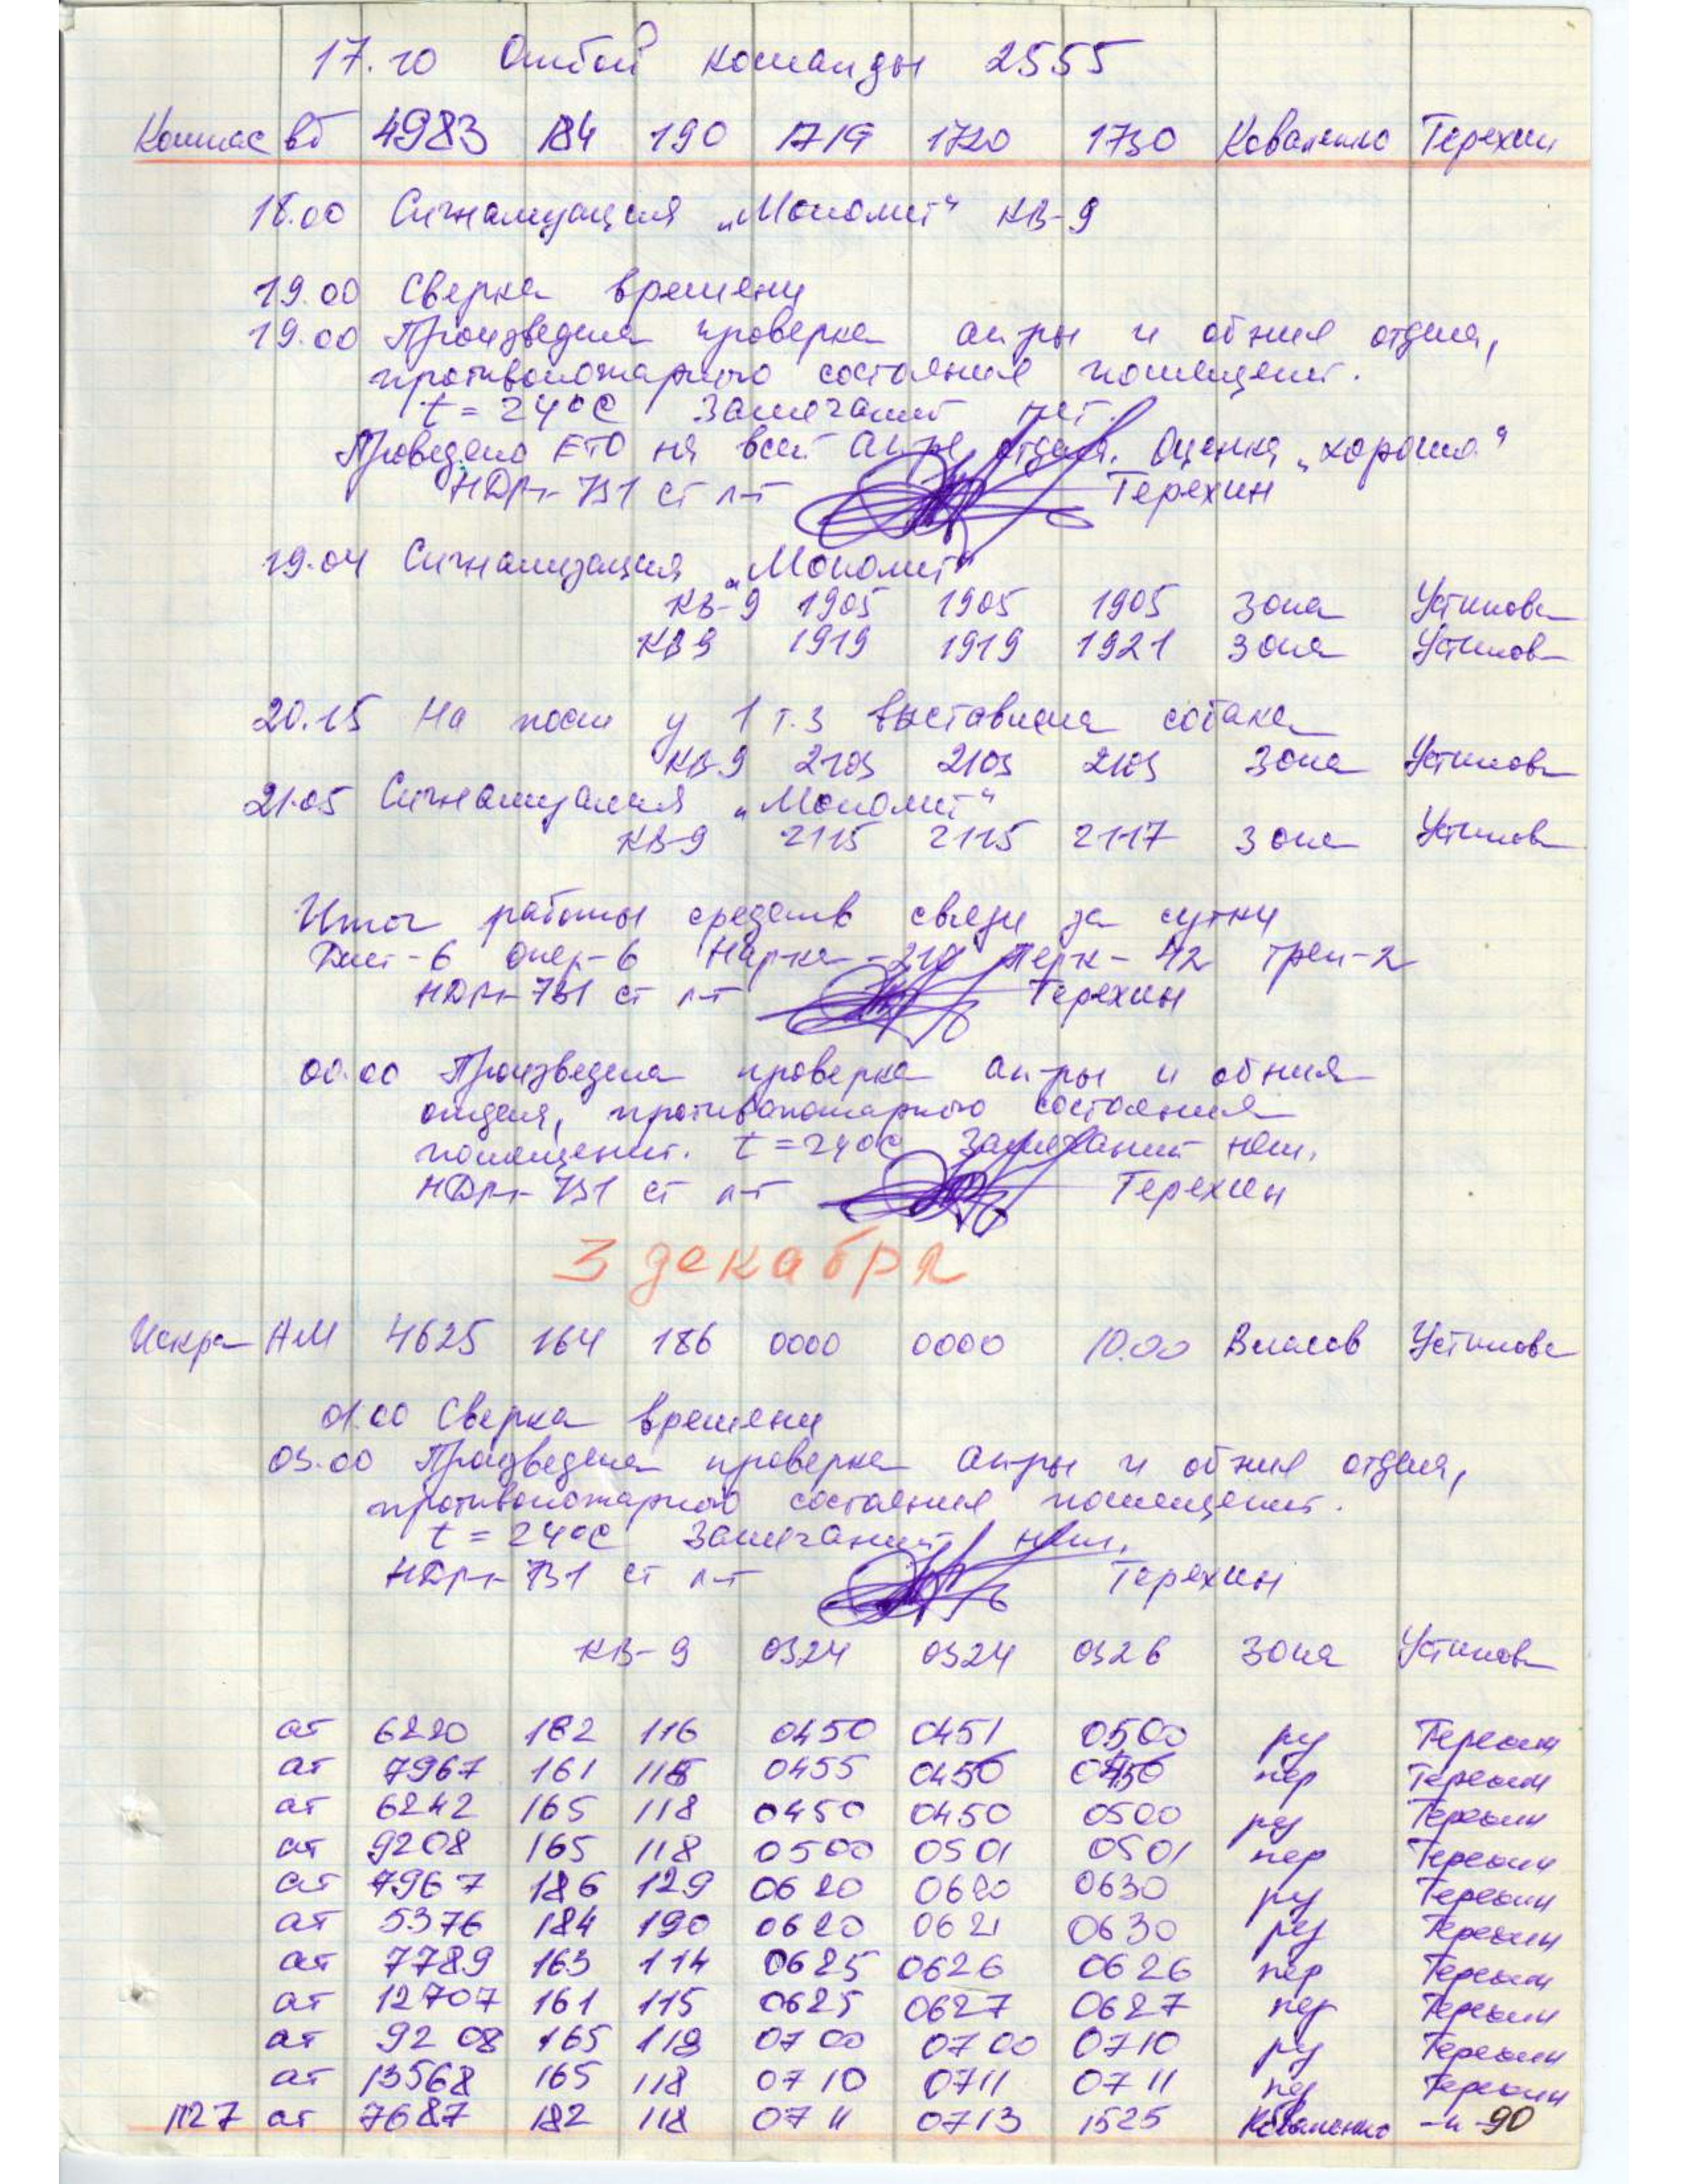 17.10 Отбой команды 2555
Компас вб 4983 184 190 1719 1720 1730 Коваленко Терехин
18.00 Сигнализация „Монолит" КВ-9
19.00 Сверка времени
19.00 Произведена проверка ап-ры и об-ния отдела,
противопожарного состояния помещений.
t = 24°С Замечаний нет.
Проведено ЕТО на всей ап-ре отдела. Оценка „хорошо"
НДРТ-731 ст л-т Терехин
19.04 Сигнализация „Монолит"
КВ-9 1905 1905 1905 Зона Устинова
КВ9 1919 1919 1921 Зона Устинов
20.15 На посту у 1 т.з выставлена собака
КВ-9 2103 2103 2103 Зона Устинова
21.05 Сигнализация „Монолит"
КВ-9 2115 2115 2117 Зона Устинов
Итог работы средств связи за сутки
опер-6 -210 - 42 трен-2
НДРТ-731 ст л-т Терехин
00.00 Произведена проверка ап-ры и об-ния
отдела, противопожарного состояния
помещений. t = 24°С Замечаний нет.
НДРТ-731 ст л-т Терехин
3 декабря
Искра АМ 4625 164 186 0000 0000 10.00 Власов Устинова
01.00 Сверка времени
03.00 Произведена проверка ап-ры и об-ния отдела,
противопожарного состояния помещений.
t = 24°С Замечаний нет.
НДРТ-731 ст л-т Терехин
КВ-9 0324 0324 0326 Зона Устинов
ат 6220 182 116 0450 0451 0500 ру Терехин
ат 7967 161 118 0455 0456 0456 пер Терехин
ат 6242 165 118 0450 0450 0500 ру Терехин
ат 9208 165 118 0500 0501 0501 пер Терехин
ат 7967 186 129 0620 0620 0630 ру Терехин
ат 5376 184 190 0620 0621 0630 ру Терехин
ат 7789 163 114 0625 0626 0626 пер Терехин
ат 12707 161 115 0625 0627 0627 пер Терехин
ат 9208 165 118 0700 0700 0710 ру Терехин
ат 13568 165 118 0710 0711 0711 Терехин
П27 ат 7687 182 118 0711 0713 1525 Коваленко -и- 90